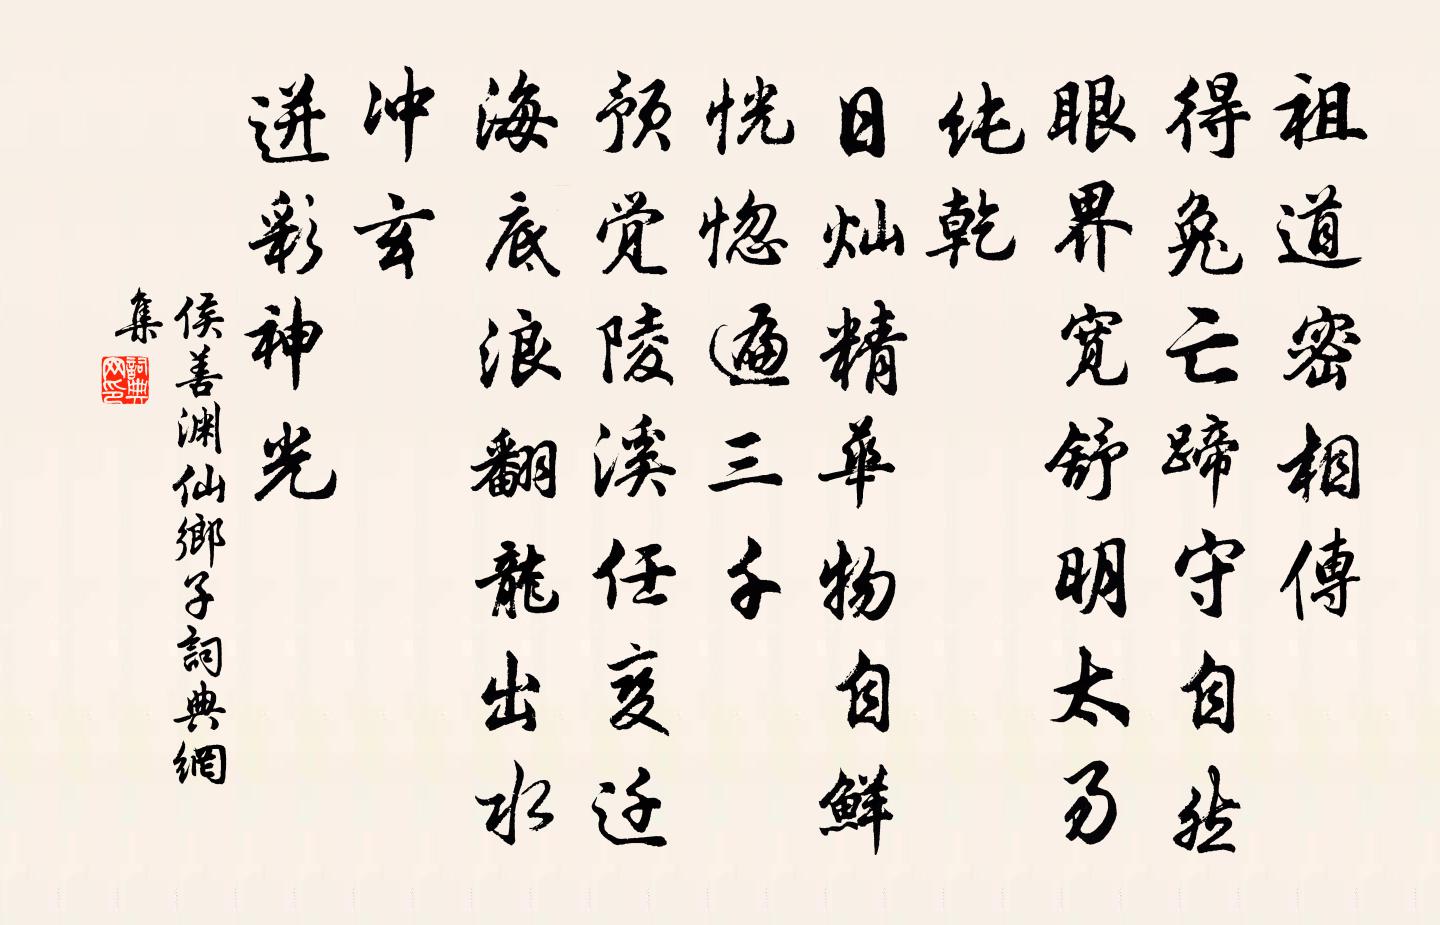 祖道密相傳
得兔亡蹄守自然
眼界宽舒明太易
纯乾
日灿精華物自鮮
恍惚遍三千
预觉陵溪任变迁
海底浪翻龍出水
冲玄
迸彩神光
侯善渊仙鄉子詞典網
集
詞典网印